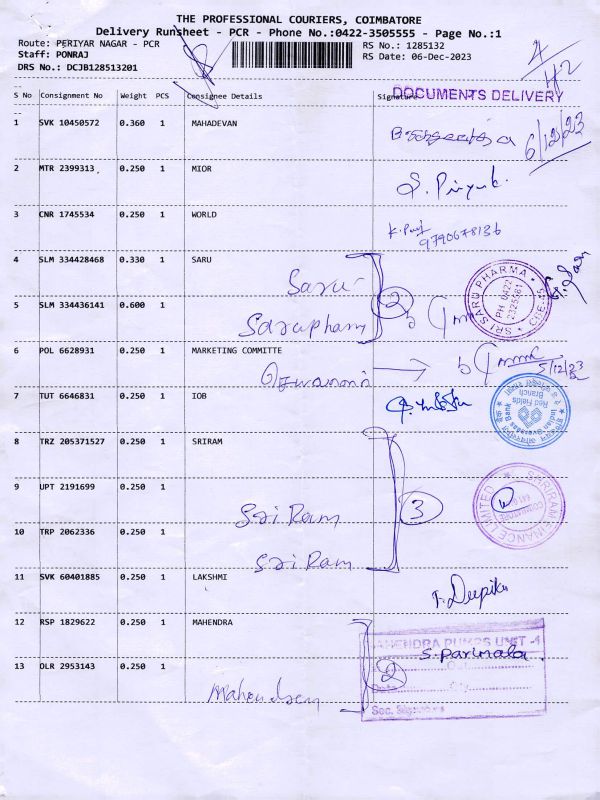 THE PROFESSIONAL COURIERS, COIMBATORE
Delivery Runsheet - PCR - Phone No.:0422-3505555 - Page No.:1
Route: PERIYAR NAGAR - PCR
RS No.: 1285132
Staff: PONRAJ
RS Date: 06-Dec-2023
DRS No.: DCJB128513201
S No Consignment No Weight PCS Consignee Details Signature
DOCUMENTS DELIVERY
1 SVK 10450572 0.360 1 MAHADEVAN
6/12/23
2 MTR 2399313 0.250 1 MIOR
S. Priya
3 CNR 1745534 0.250 1 WORLD
9790678136
4 SLM 334428468 0.330 1 SARU
Saru
SRI SARU PHARMA
PH 0422
2325581
CBE-45
2
5 SLM 334436141 0.600 1
Sarupham
6 POL 6628931 0.250 1 MARKETING COMMITTE
5/12/23
7 TUT 6646831 0.250 1 IOB
Indian Overseas Bank
Red Fields
Branch
8 TRZ 205371527 0.250 1 SRIRAM
9 UPT 2191699 0.250 1
3
SHRIRAM FINANCE LIMITED
COIMBATORE
Sri Ram
10 TRP 2062336 0.250 1
Sri Ram
11 SVK 60401885 0.250 1 LAKSHMI
T. Deepika
12 RSP 1829622 0.250 1 MAHENDRA
MAHENDRA PUMPS UNIT -4
S. Parimala
13 DLR 2953143 0.250 1
2
Date
Sec.